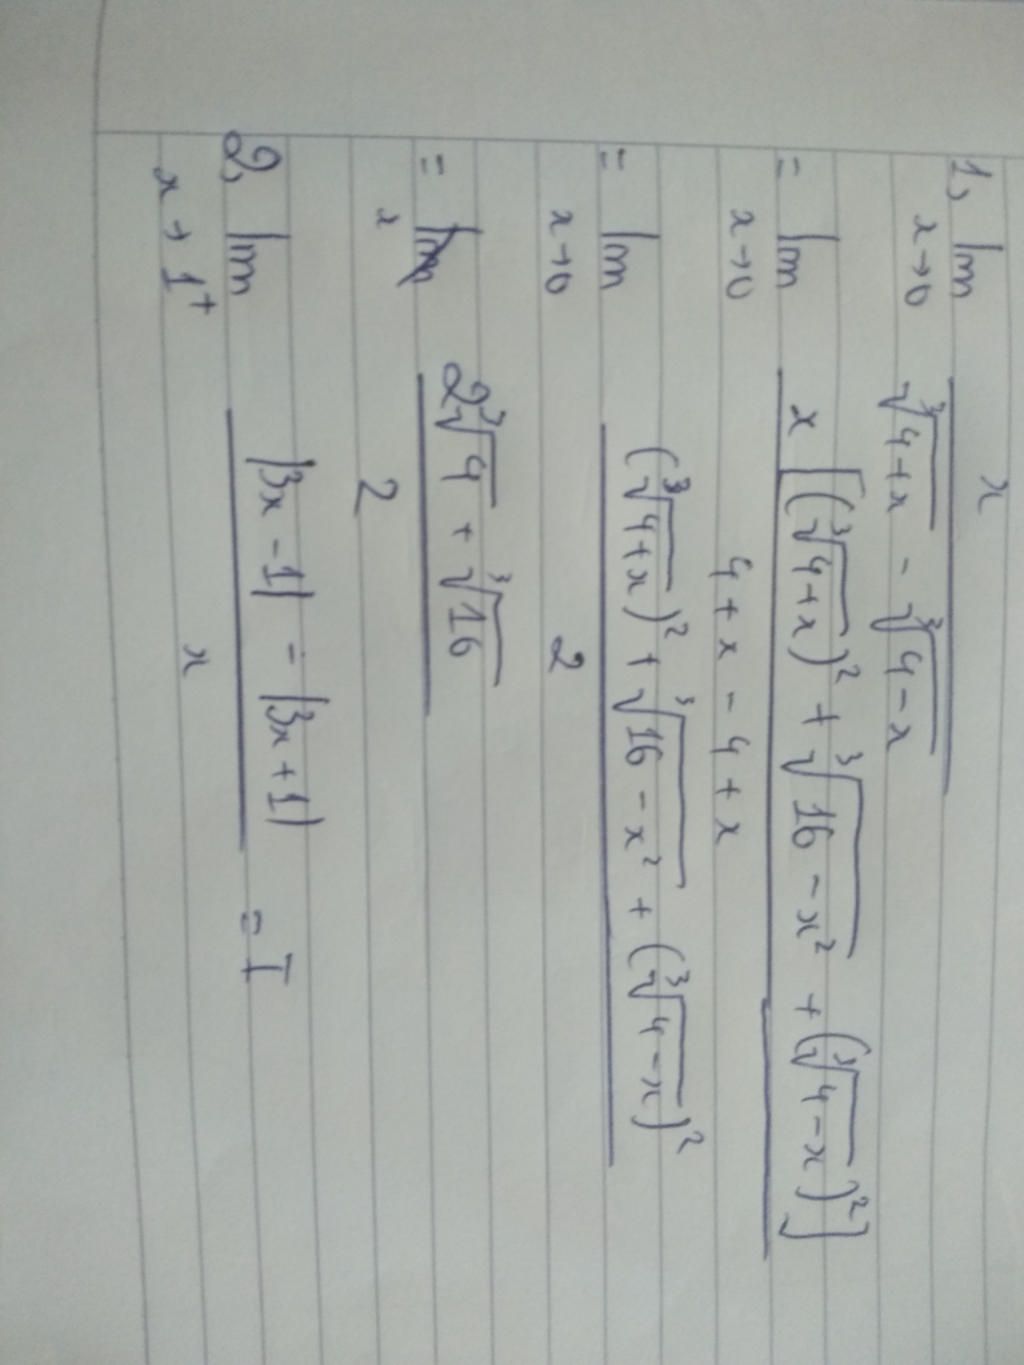 1, lim x→0 x / (∛(4+x) - ∛(4-x))
= lim x→0 x[(∛(4+x))² + ∛(16-x²) + (∛(4-x))²] / (4+x-4+x)
= lim x→0 ((∛(4+x))² + ∛(16-x²) + (∛(4-x))²) / 2
= (2∛4 + ∛16) / 2
2, lim x→1⁺ (|3x-1| - |3x+1|) / x = I